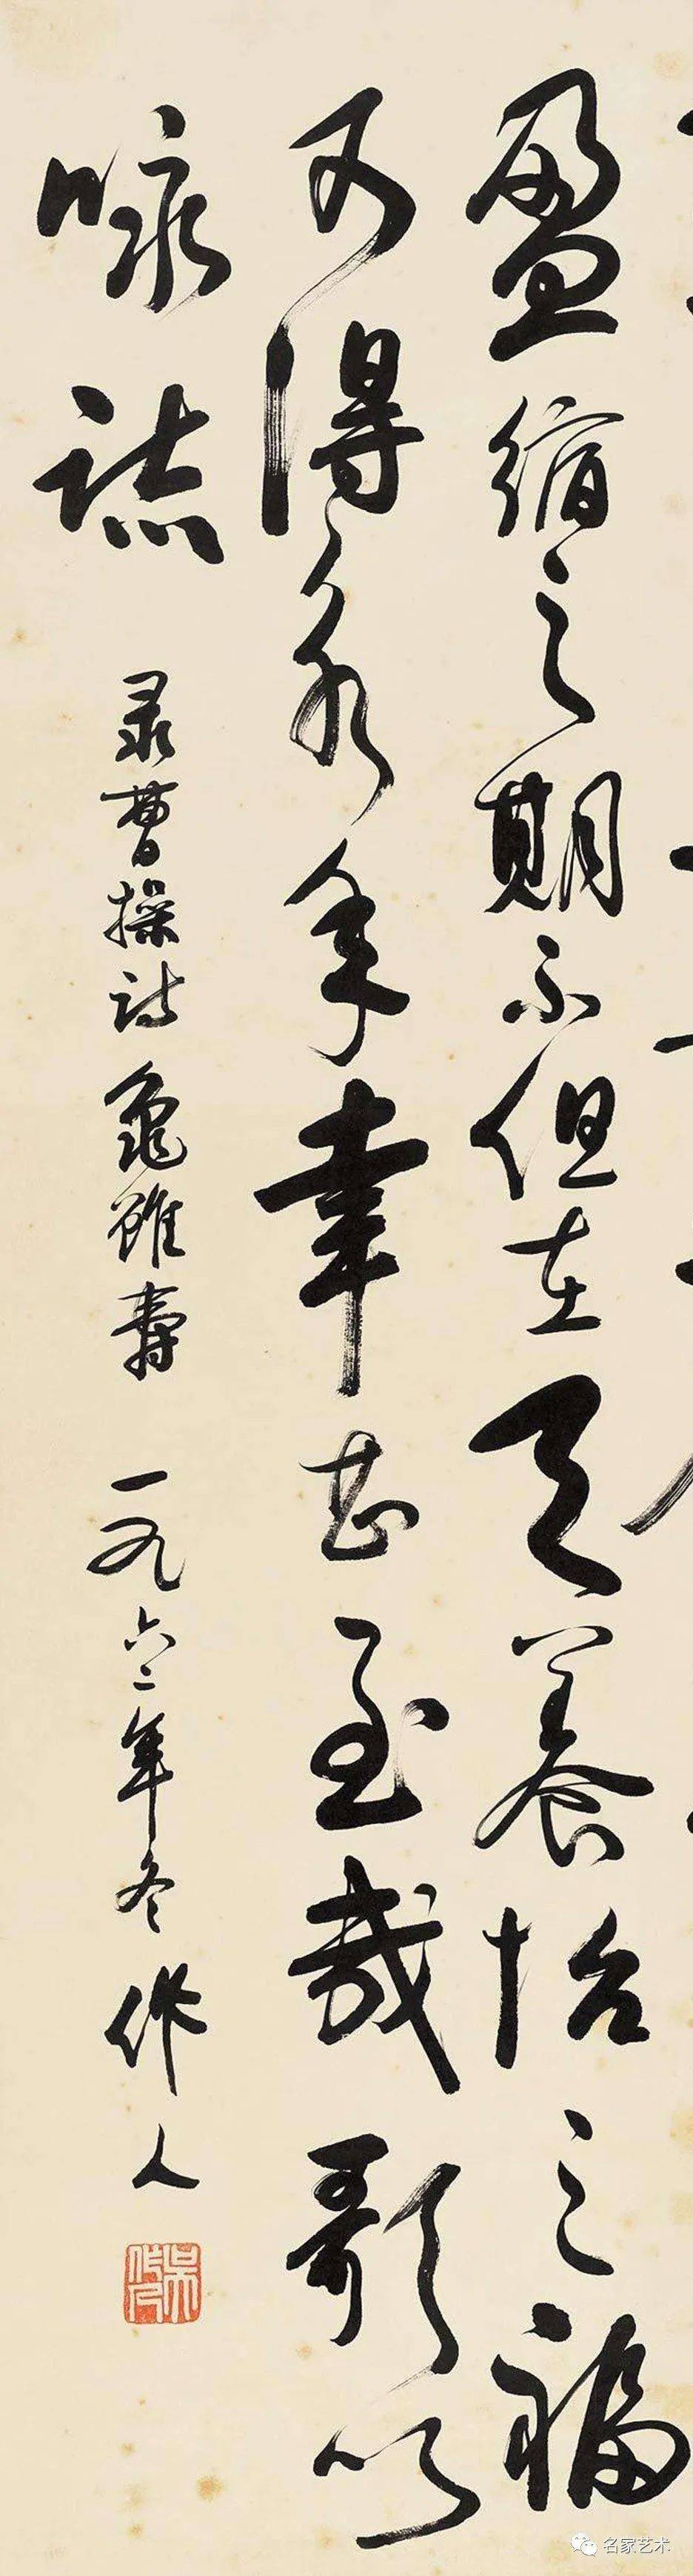 盈缩之期不但在天养怡之福
可得永年幸甚至哉歌以
咏志
录曹操诗龟虽寿 一九六二年冬 作人
吴作人
名家艺术